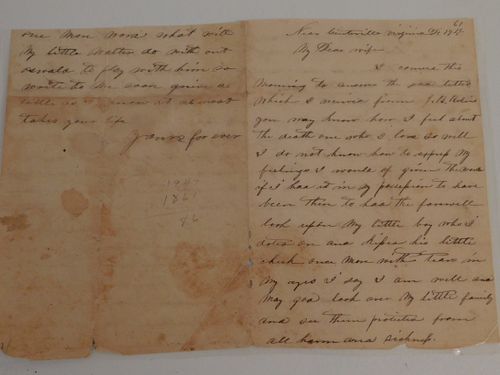 61
Near Centreville Virginia De 19th
My Dear wife
I comence this
Morning to answer the sad letter
which I receive from J B
you may know how I feel about
the death one who I love so well
I do not know how to express My
feelings I would of given the
if I had it in My possession to have
been there to had the farewell
look upon My little boy who I
doted on and kissed his little
cheek once More with tears in
My eyes I say I am well and
May god look over My little family
and see them protected from
all harm and sickness.
one More what will
My little Walter do with out
to play with him so
write to Me soon
as I it al most
takes your life
yours for ever
1947
1861
86